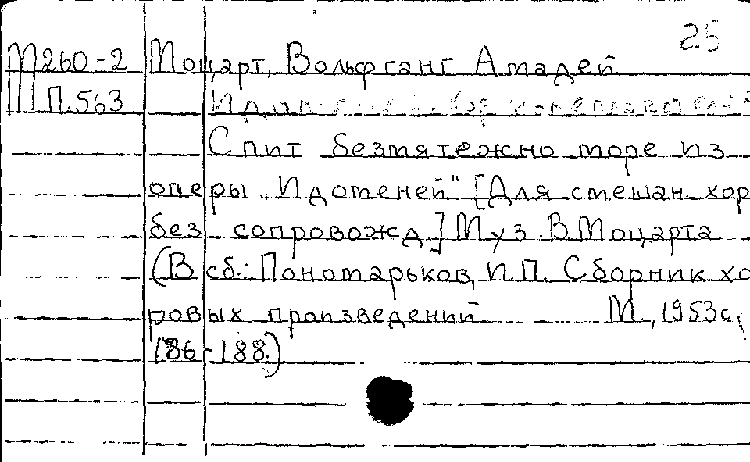 25
М260-2 Моцарт, Вольфганг Амадей
Ш П.563 Идоменей.
Спит безмятежно море из
оперы „Идоменей" [Для смешан. хор
без сопровожд.] Муз. В. Моцарта
(В сб.: Пономарьков, И.П. Сборник хо
ровых произведений М., 1953с,
186-188.)